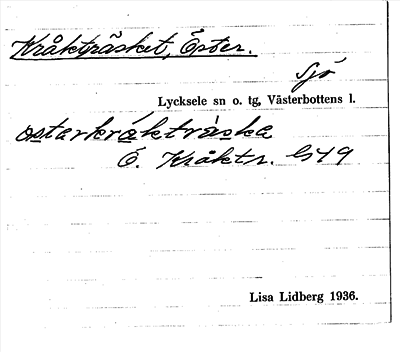 Kråkträsket, Öster.
Sjö
Lycksele sn o. tg, Västerbottens l.
östarkråkträska
Ö. Kråktr. G49
Lisa Lidberg 1936.